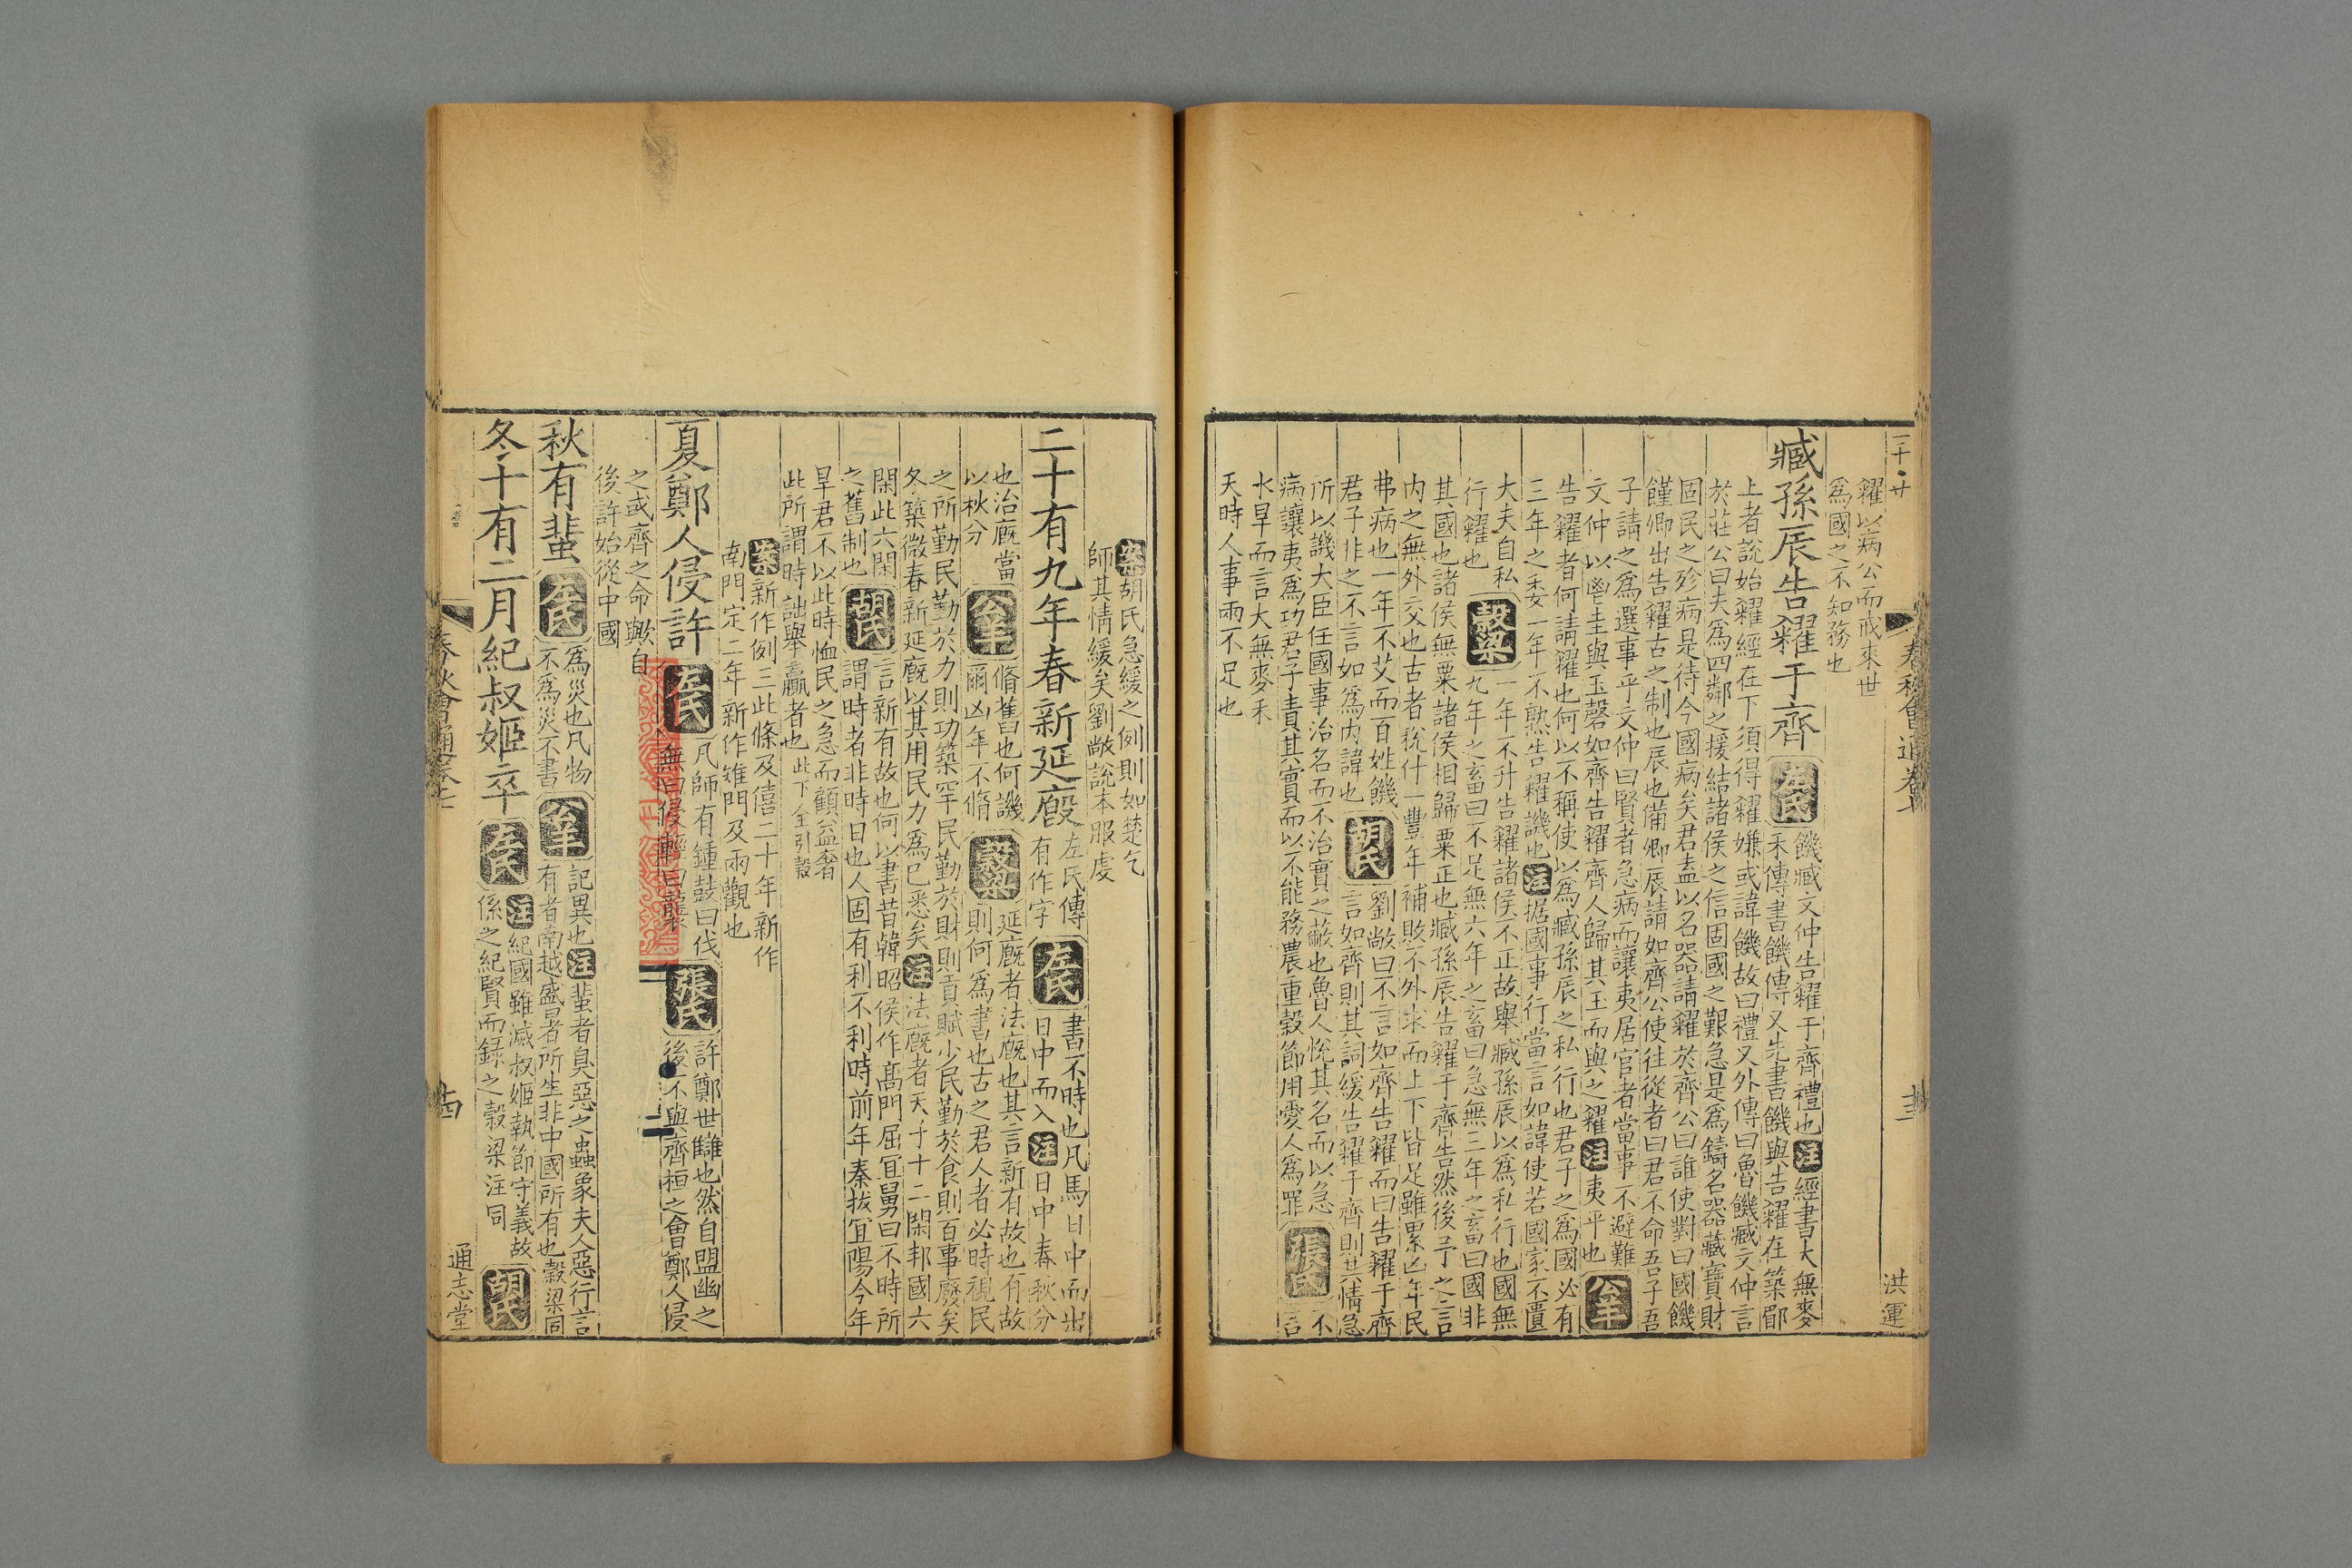 糴以病公而戒來世
爲國之不知務也
臧孫辰告糴于齊
左氏
饑臧文仲告糴于齊禮也注經書大無麥
禾傳書饑傳又先書饑與告糴在築郿
上者說始糴經在下須得糴嫌或諱饑故曰禮又外傳曰魯饑臧文仲言
於莊公曰夫爲四鄰之援結諸侯之信固國之艱急是爲鑄名器藏寶財
固民之殄病是待今國病矣君盍以名器請糴於齊公曰誰使對曰國饑
饉卿出告糴古之制也辰也備卿辰請如齊公使往從者曰君不命吾子吾
子請之爲選事乎文仲曰賢者急病而讓夷居官者當事不避難
文仲以鬯圭與玉磬如齊告糴齊人歸其玉而與之糴注夷平也
公羊
告糴者何請糴也何以不稱使以爲臧孫辰之私行也君子之爲國必有
三年之委一年不熟告糴譏也注据國事行當言如諱使若國家不匱
大夫自私
行糴也
穀梁
一年不升告糴諸侯不正故舉臧孫辰以爲私行也國無
九年之畜曰不足無六年之畜曰急無三年之畜曰國非
其國也諸侯無粟諸侯相歸粟正也臧孫辰告糴于齊告然後予之言
内之無外交也古者稅什一豐年補敗不外求而上下皆足雖累凶年民
弗病也一年不艾而百姓饑
君子非之不言如爲内諱也
胡氏
劉敞曰不言如齊告糴而曰告糴于齊
言如齊則其詞緩告糴于齊則其情急
所以譏大臣任國事治名而不治實之蔽也魯人悅其名而以急
病讓夷爲功君子責其實而以不能務農重穀節用愛人爲罪
張氏
不
言
水旱而言大無麥禾
天時人事兩不足也
春秋會通卷七
洪運
案胡氏急緩之例則如楚乞
師其情緩矣劉敞說本服虔
二十有九年春新延廄
左氏傳
有作字
左氏
書不時也凡馬日中而出
日中而入注日中春秋分
也治廐當
以秋分
公羊
脩舊也何譏
爾凶年不脩
穀梁
延廐者法廐也其言新有故也有故
則何爲書也古之君人者必時視民
之所勤民勤於力則功築罕民勤於財則貢賦少民勤於食則百事廢矣
冬築微春新延廐以其用民力爲已悉矣注法廐者天子十二閑邦國六
閑此六閑
之舊制也
胡氏
言新有故也何以書昔韓昭侯作髙門屈宜臼曰不時所
謂時者非時日也人固有利不利時前年秦拔宜陽今年
旱君不以此時恤民之急而顧益奢
此所謂時詘舉贏者也此下全引穀
案新作例三此條及僖二十年新作
南門定二年新作雉門及兩觀也
夏鄭人侵許
左氏
凡師有鍾鼓曰伐
無曰侵輕曰襲
張氏
許鄭世讎也然自盟幽之
後不與齊桓之會鄭人侵
之或齊之命歟自
後許始從中國
秋有蜚
左氏
爲災也凡物
不爲災不書
公羊
記異也注蜚者臭惡之蟲象夫人惡行言
有者南越盛暑所生非中國所有也穀梁同
冬十有二月紀叔姬卒
左氏
注紀國雖滅叔姬執節守義故
係之紀賢而録之穀梁注同
胡氏
春秋會通卷七
通志堂